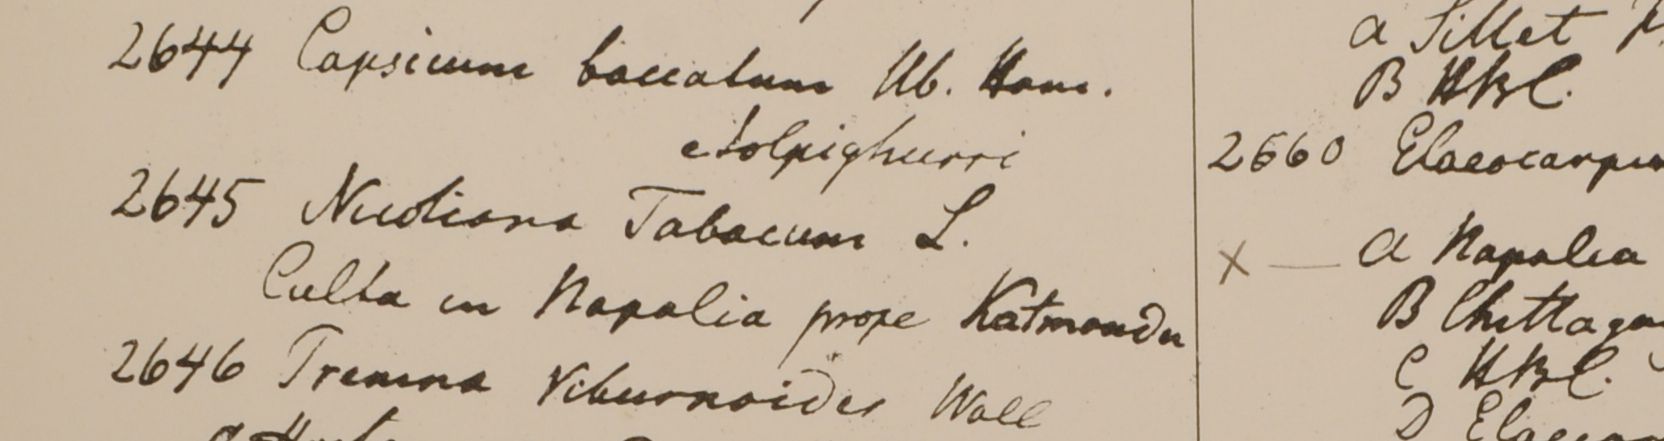 2644 Capsicum baccatum Hb. Ham.
2645 Nicotiana Tabacum L.
Culta in Napalia prope Katmandu
2646 Premna Viburnoides Wall
a Sillet
B HBC.
2660 Elaeocarpu
X — a Napalia
B Chittago
C HBC.
D Elaeoca